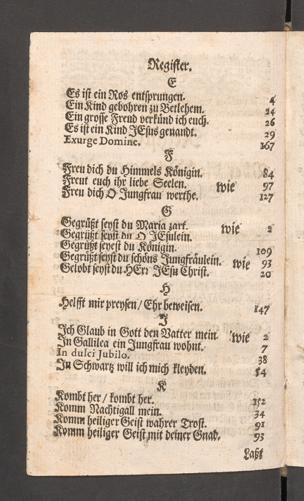 Register.
E
Es ist ein Ros entsprungen. 4
Ein Kind gebohren zu Betlehem. 24
Ein grosse Freud verkünd ich euch. 26
Es ist ein Kind JEsus genandt. 29
Exurge Domine. 167
F
Freu dich du Himmels Königin. 84
Freut euch ihr liebe Seelen. wie 97
Freu dich O Jungfrau werthe. 127
G
Gegrüßt seyst du Maria zart. wie 2
Gegrüßt seyst du O JEsulein.
Gegrüßt seyest du Königin. 109
Gegrüßt seyst du schöns Jungfräulein. wie 93
Gelobt seyst du HErr JEsu Christ. 20
H
Helfft mir preysen / Ehr beweisen. 147
J
Ich Glaub in Gott den Vatter mein wie 2
In Gallilea ein Jungfrau wohnt. 7
In dulci Jubilo. 38
In Schwartz will ich mich kleyden. 54
K
Kombt her / kombt her. 152
Komm Nachtigall mein. 34
Komm heiliger Geist wahrer Trost. 91
Komm heiliger Geist mit deiner Gnad. 93
Laßt